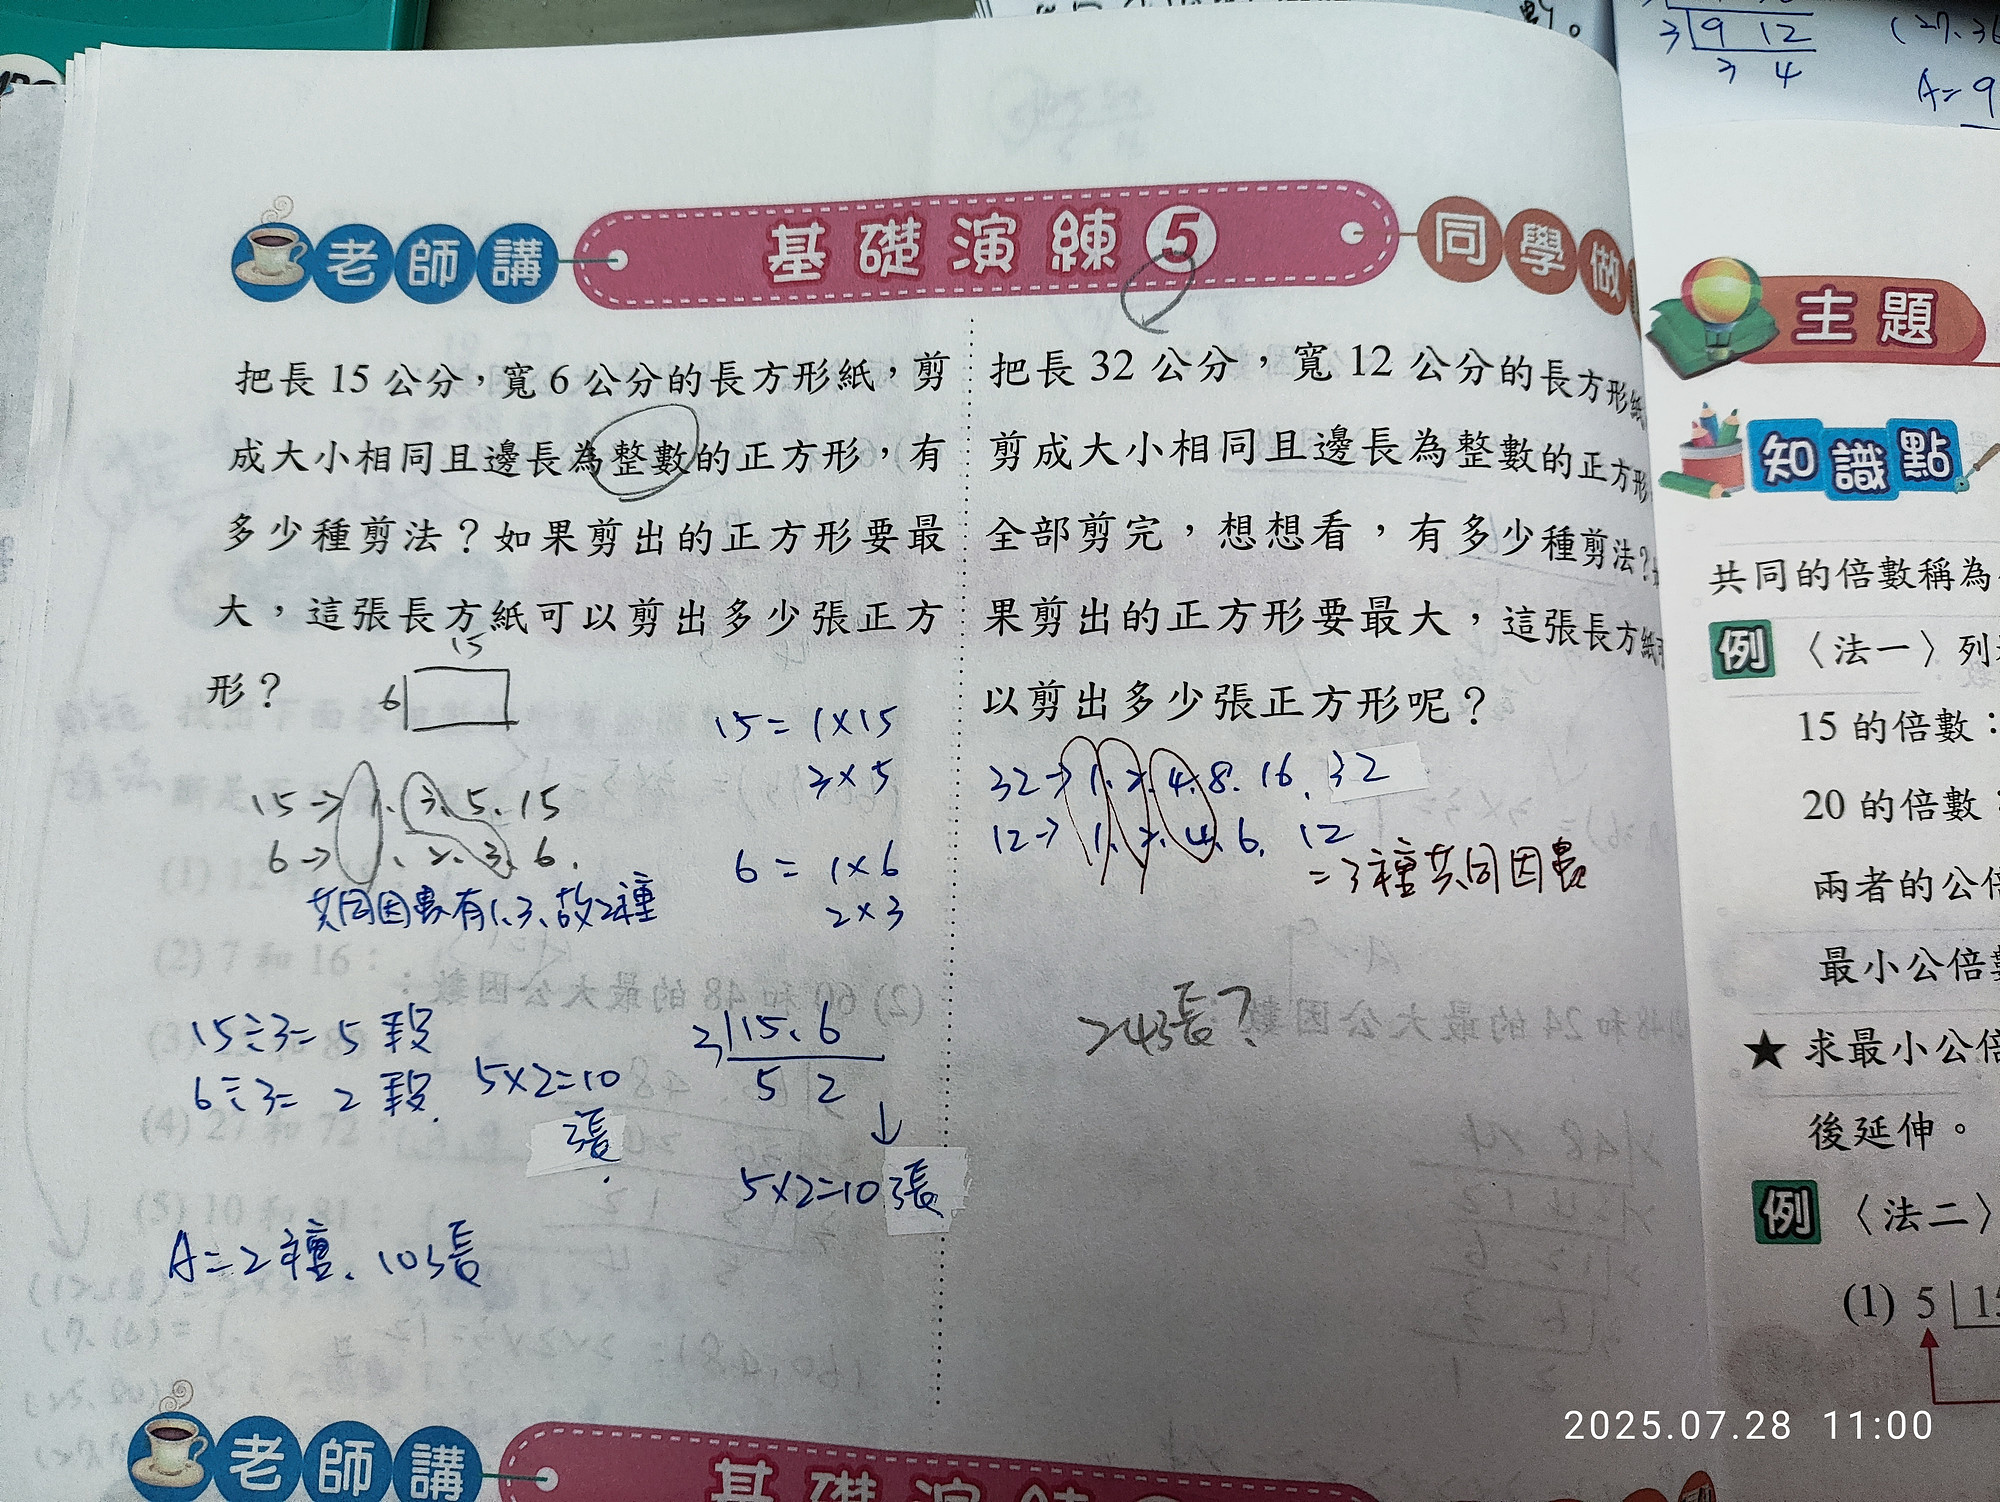 3 9 12
3 4
(27、36
A=9
老師講
基礎演練5
同學做
把長 15 公分，寬 6 公分的長方形紙，剪
成大小相同且邊長為整數的正方形，有
多少種剪法？如果剪出的正方形要最
大，這張長方紙可以剪出多少張正方
形？
15
6
15=1×15
3×5
15→1、3、5、15
6→1、2、3、6.
6=1×6
2×3
共同因數有1、3、故2種
15÷3=5段
6÷3=2段
5×2=10
張
3 15、6
5 2
↓
5×2=10張
A=2種、10張
把長 32 公分，寬 12 公分的長方形紙
剪成大小相同且邊長為整數的正方形
全部剪完，想想看，有多少種剪法？
果剪出的正方形要最大，這張長方紙可
以剪出多少張正方形呢？
32→1、2、4、8、16、32
12→1、2、4、6、12
=3種共同因數
24張？
主題
知識點
共同的倍數稱為
例 〈法一〉列
15 的倍數：
20 的倍數
兩者的公倍
最小公倍數
★ 求最小公倍
後延伸。
例 〈法二〉
(1) 5 15
老師講
基礎演練
2025.07.28 11:00